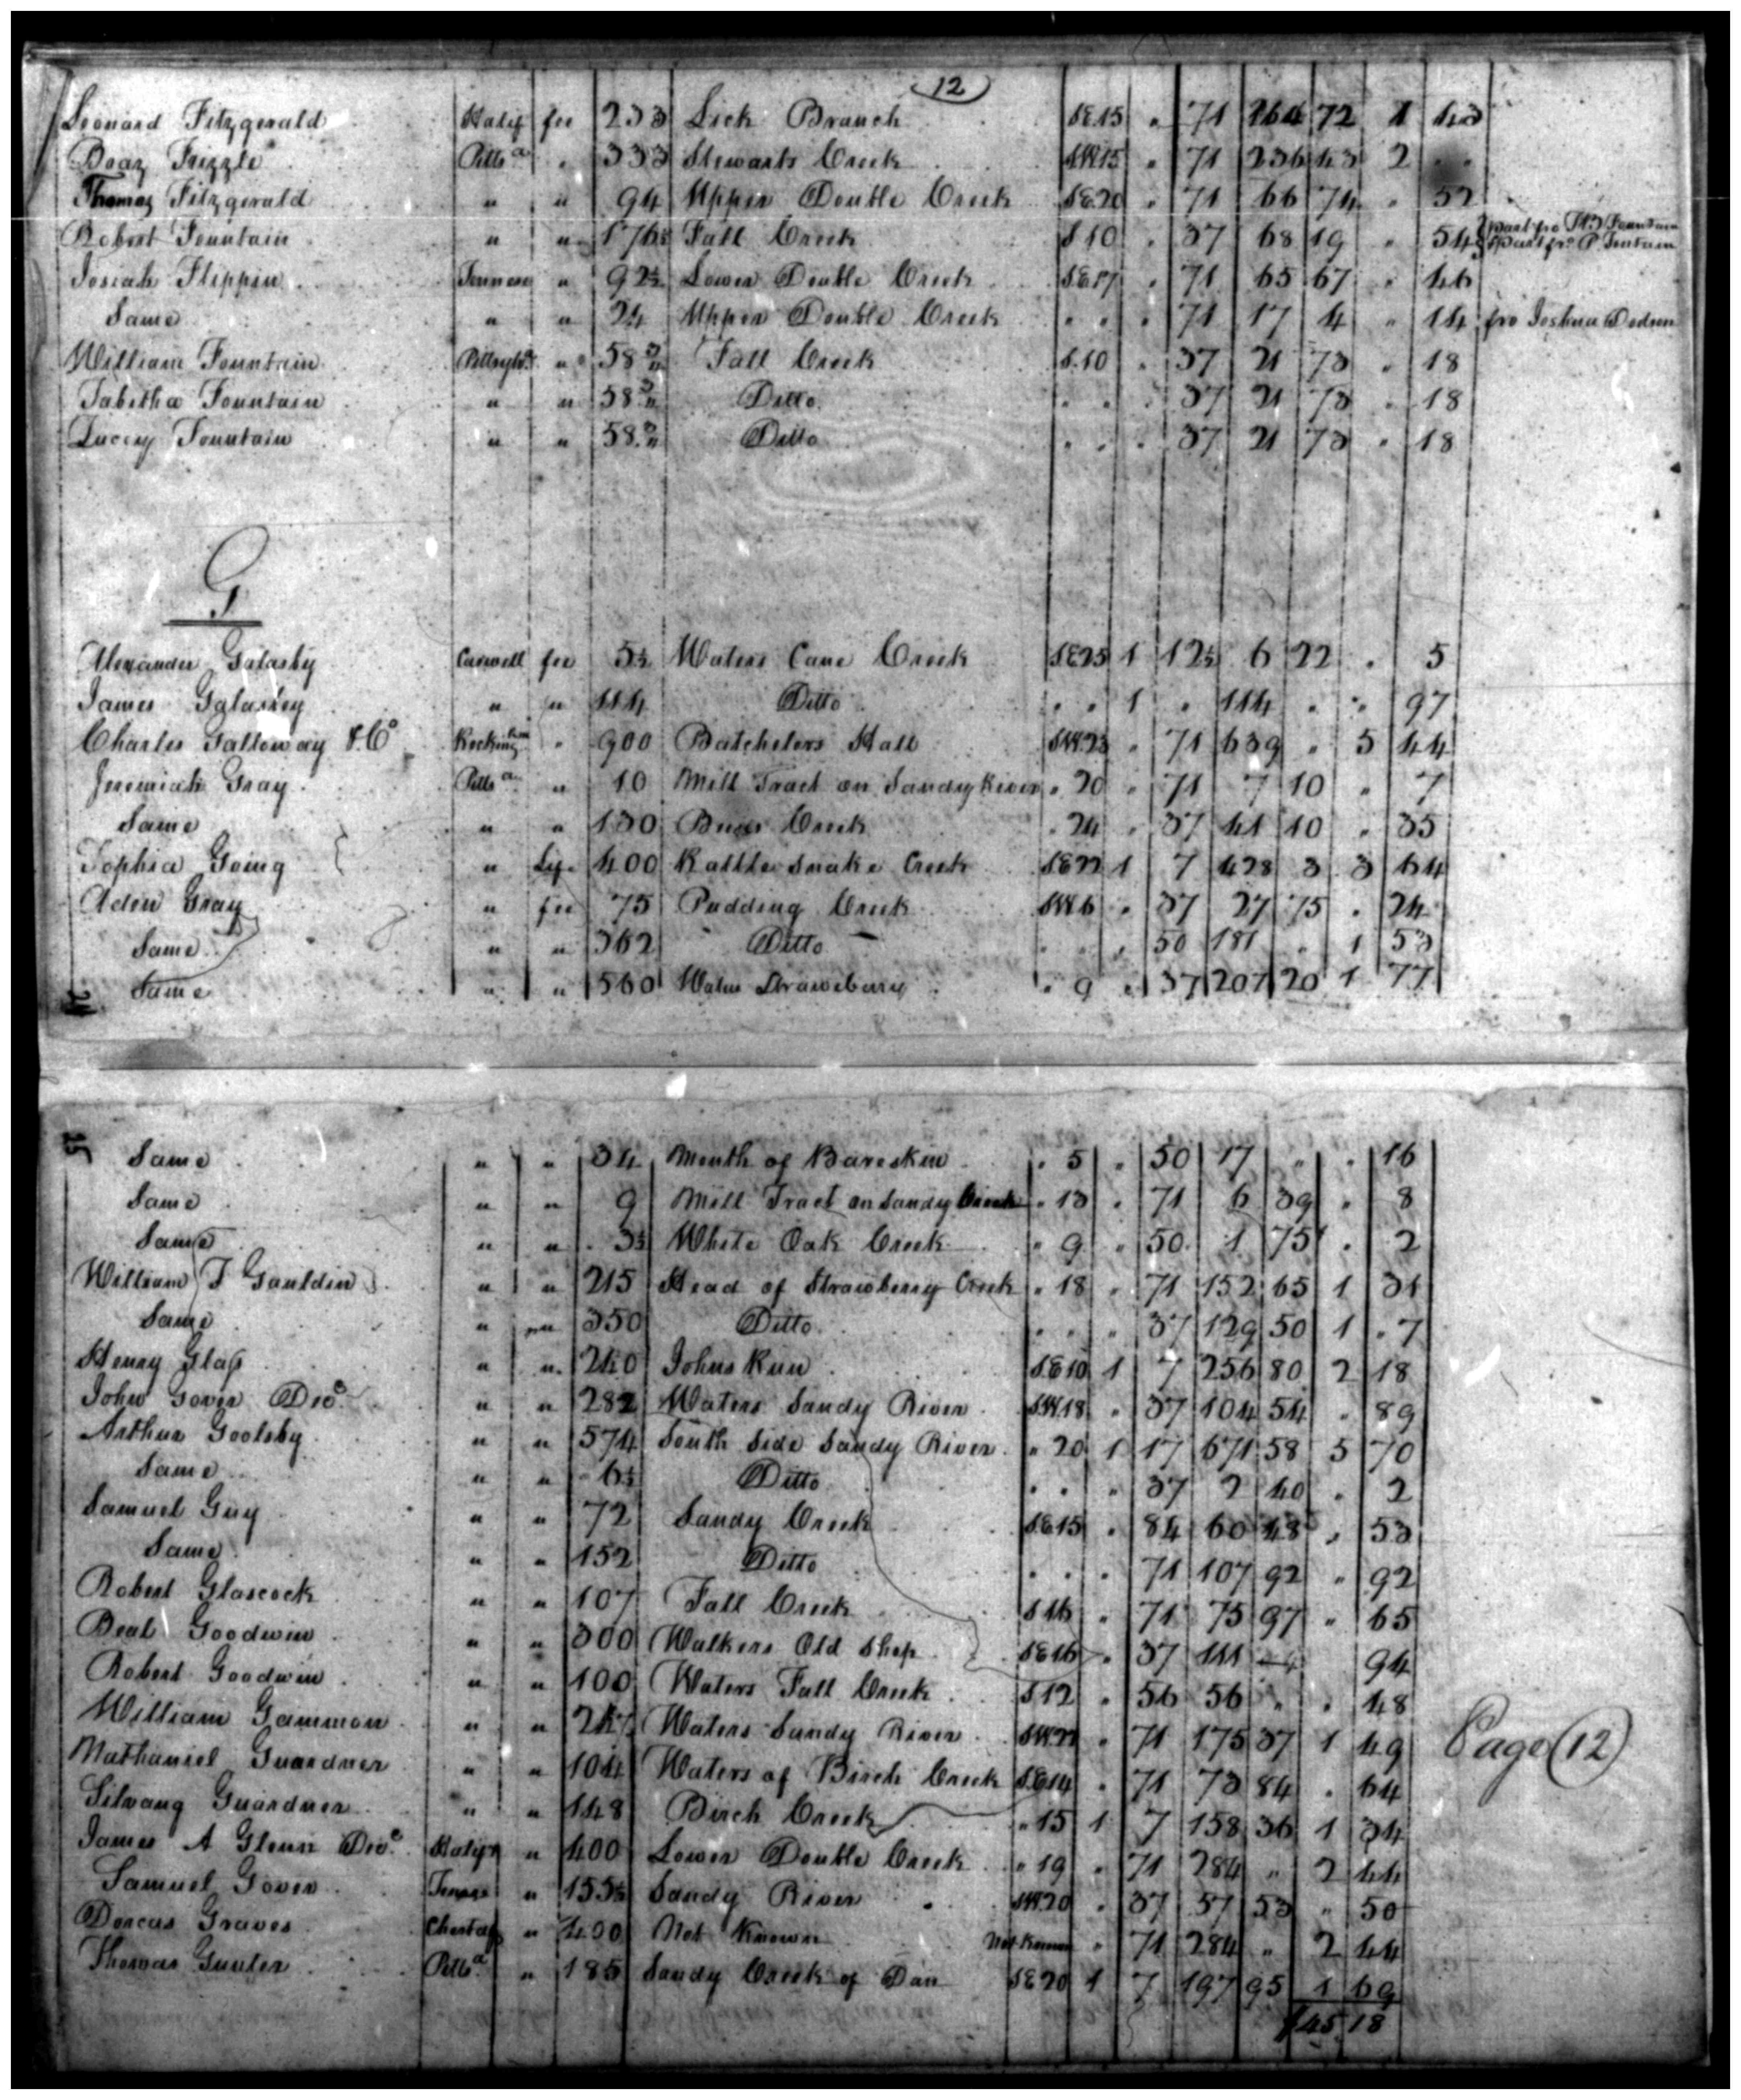 12
Leonard Fitzgerald Halif fee 233 Lick Branch S.E.15 " 71 164 72 1 43
Boaz Frizzle Pitts a " 333 Stewarts Creek S.W.15 " 71 236 43 2 " "
Thomas Fitzgerald " " 94 Upper Double Creek S.E.20 " 71 66 74 " 52
Robert Fountain " " Fall Creek S 10 " 37 68 19 " 54 part fro P. Fontain
Josiah Flippin " 92½ Lower Double Creek S.E.17 " 71 65 67 " 46
Same " " 24 Upper Double Creek " " " 71 17 4 " 14 fro Joshua Dodson
William Fountain " 58 Fall Creek S.10 " 37 21 73 " 18
Tabitha Fountain " " 58 Ditto " " " 37 21 73 " 18
Lucey Fountain " " 58 Ditto " " " 37 21 73 " 18
G
Alexander Galasby Caswell fee 5½ Waters Cane Creek S.E.25 1 12½ 6 22 " 5
James Galasby " " 114 Ditto " " 1 " 114 " " 97
Charles Galloway & Co Rockingham " 900 Batchelors Hall S.W.23 " 71 639 " 5 44
Jeremiah Gray Pitts a " 10 Mill Tract on Sandy River " 20 " 71 7 10 " 7
Same " " 130 Creek " 24 " 37 41 10 " 35
Sophia Going " Life 400 Rattlesnake Creek S.E.22 1 7 428 3 3 64
Aden Gray " fee 75 Pudding Creek S.W.6 " 37 27 75 " 24
Same " " 362 Ditto " " " 50 181 " 1 53
Same " " 560 Waters Strawberry " 9 " 37 207 20 1 77
Same " " 34 Mouth of Bareskin " 5 " 50 17 " " 16
Same " " 9 Mill Tract on Sandy Creek " 13 " 71 6 39 " 8
Same " " 3½ White Oak Creek " 9 " 50 1 75 " 2
William T Gauldin " " 215 Head of Strawberry Creek " 18 " 71 152 65 1 31
Same " " 350 Ditto " " " 37 129 50 1 " 7
Henry Glass " " 240 Johns Run S.E.10 1 7 256 80 2 18
John Gover Decd " " 282 Waters Sandy River S.W.18 " 37 104 54 " 89
Arthur Goolsby " " 574 South Side Sandy River " 20 1 17 671 58 5 70
Same " " 6½ Ditto " " " 37 2 40 " 2
Samuel Guy " " 72 Sandy Creek S.E.15 " 84 60 48 " 53
Same " " 152 Ditto " " " 71 107 92 " 92
Robert Glascock " " 107 Fall Creek S 16 " 71 75 97 " 65
Beal Goodwin " " 300 Walkers Old Shop S.E.16 " 37 111 — 94
Robert Goodwin " " 100 Waters Fall Creek S 12 " 56 56 " " 48
William Gammon " " 247 Waters Sandy River S.W.22 " 71 175 37 1 49
Nathaniel Guardner " " 104 Waters of Birch Creek S.E.14 " 71 73 84 " 64
Silvany Guardner " " 148 Birch Creek " 15 1 7 158 36 1 34
James A Glenn Decd Halifx " 400 Lower Double Creek " 19 " 71 284 " 2 44
Samuel Gover " 155½ Sandy River S.W.20 " 37 57 53 " 50
Dorcas Graves " 400 Not Known Not Known " 71 284 " 2 44
Thomas Gunter Pitts a " 185 Sandy Creek of Dan S.E.20 1 7 197 95 1 69
$45 18
Page (12)